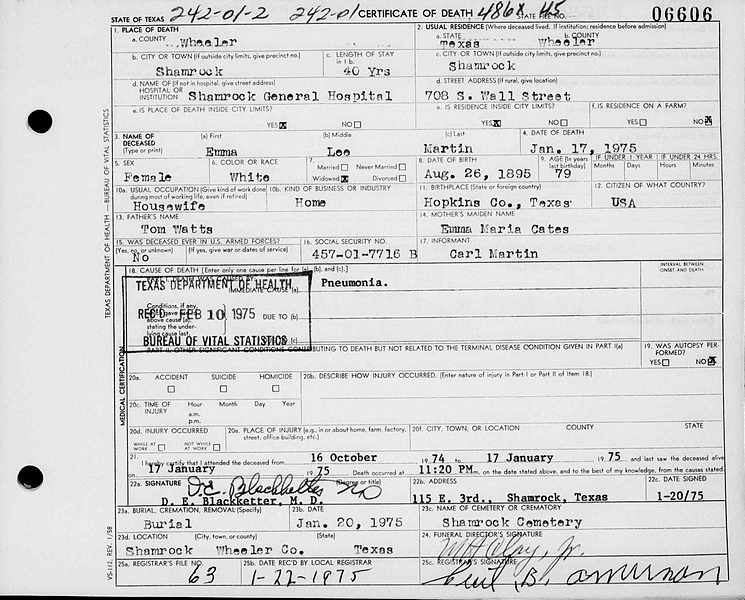 242-01-2 242-01 CERTIFICATE OF DEATH 486X 45 06606
STATE OF TEXAS STATE FILE NO.
1. PLACE OF DEATH 2. USUAL RESIDENCE (Where deceased lived. If institution: residence before admission)
a. COUNTY Wheeler a. STATE Texas b. COUNTY Wheeler
b. CITY OR TOWN (If outside city limits, give precinct no.) Shamrock c. LENGTH OF STAY in 1 b. 40 Yrs c. CITY OR TOWN (If outside city limits, give precinct no.) Shamrock
d. NAME OF (If not in hospital, give street address) HOSPITAL OR INSTITUTION Shamrock General Hospital d. STREET ADDRESS (If rural, give location) 708 S. Wall Street
e. IS PLACE OF DEATH INSIDE CITY LIMITS? YES X NO e. IS RESIDENCE INSIDE CITY LIMITS? YES X NO f. IS RESIDENCE ON A FARM? YES NO X
3. NAME OF DECEASED (Type or print) (a) First Emma (b) Middle Lee (c) Last Martin 4. DATE OF DEATH Jan. 17, 1975
5. SEX Female 6. COLOR OR RACE White 7. Married Never Married Widowed X Divorced 8. DATE OF BIRTH Aug. 26, 1895 9. AGE (In years last birthday) 79 IF UNDER 1 YEAR Months Days IF UNDER 24 HRS. Hours Min.
10a. USUAL OCCUPATION (Give kind of work done during most of working life, even if retired) Housewife 10b. KIND OF BUSINESS OR INDUSTRY Home 11. BIRTHPLACE (State or foreign country) Hopkins Co., Texas 12. CITIZEN OF WHAT COUNTRY? USA
13. FATHER'S NAME Tom Watts 14. MOTHER'S MAIDEN NAME Emma Maria Cates
15. WAS DECEASED EVER IN U.S. ARMED FORCES? (Yes, no, or unknown) No (If yes, give war or dates of service) 16. SOCIAL SECURITY NO. 457-01-7716 B 17. INFORMANT Carl Martin
18. CAUSE OF DEATH [Enter only one cause per line for (a), (b), and (c).] INTERVAL BETWEEN ONSET AND DEATH
PART I. DEATH WAS CAUSED BY:
IMMEDIATE CAUSE (a) Pneumonia.
Conditions, if any, which gave rise to above cause (a), stating the underlying cause last. DUE TO (b)
(c)
TEXAS DEPARTMENT OF HEALTH
REC'D FEB 10 1975
BUREAU OF VITAL STATISTICS
PART II. OTHER SIGNIFICANT CONDITIONS CONTRIBUTING TO DEATH BUT NOT RELATED TO THE TERMINAL DISEASE CONDITION GIVEN IN PART I(a) 19. WAS AUTOPSY PERFORMED? YES NO X
20a. ACCIDENT SUICIDE HOMICIDE 20b. DESCRIBE HOW INJURY OCCURRED. (Enter nature of injury in Part I or Part II of Item 18.)
20c. TIME OF INJURY Hour a.m. p.m. Month Day Year
20d. INJURY OCCURRED WHILE AT WORK NOT WHILE AT WORK 20e. PLACE OF INJURY (e.g., in or about home, farm, factory, street, office building, etc.) 20f. CITY, TOWN, OR LOCATION COUNTY STATE
21. I hereby certify that I attended the deceased from 16 October 1974 to 17 January 1975 and last saw the deceased alive
on 17 January 1975 Death occurred at 11:20 PM, on the date stated above, and to the best of my knowledge, from the causes stated.
22a. SIGNATURE D.E. Blackketter MD (Degree or title) D. E. Blackketter, M. D. 22b. ADDRESS 115 E. 3rd., Shamrock, Texas 22c. DATE SIGNED 1-20/75
23a. BURIAL, CREMATION, REMOVAL (Specify) Burial 23b. DATE Jan. 20, 1975 23c. NAME OF CEMETERY OR CREMATORY Shamrock Cemetery
23d. LOCATION (City, town, or county) (State) Shamrock Wheeler Co. Texas 24. FUNERAL DIRECTOR'S SIGNATURE
25a. REGISTRAR'S FILE NO. 63 25b. DATE REC'D BY LOCAL REGISTRAR 1-22-1975 25c. REGISTRAR'S SIGNATURE
TEXAS DEPARTMENT OF HEALTH—BUREAU OF VITAL STATISTICS
MEDICAL CERTIFICATION
VS-112, REV. 1/58